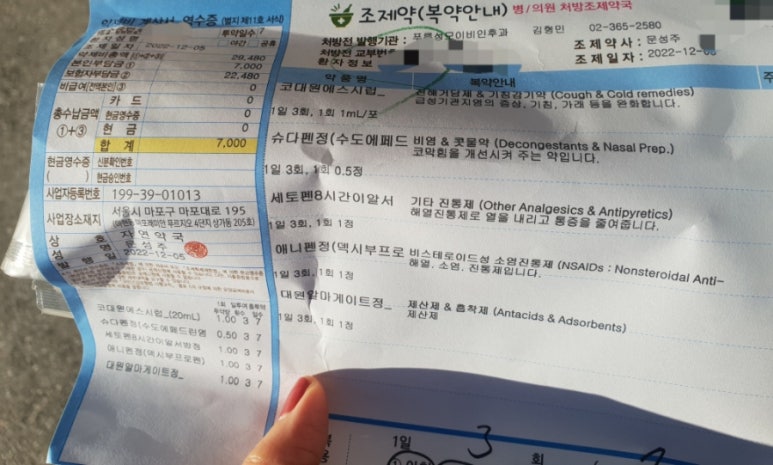 계산서 영수증 (별지 제11호 서식)
투약일수 7
환자성명 야간 공휴
조제일자 2022-12-05
약제비총액 (①+②+③) 29,480
본인부담금 ① 7,000
보험자부담금 ② 22,480
비급여(전액본인) ③ 0
총수납금액 ①+③
카드 0
현금영수증 0
현금 0
합계 7,000
현금영수증 ( )
신분확인번호
현금승인번호
사업자등록번호 199-39-01013
사업장소재지 서울시 마포구 마포대로 195
상호 자연약국
성명 문성주
발행일 2022-12-05
1회 일투여 총투약
투약량 횟수 일수
코대원에스시럽_(20mL) 1.00 3 7
슈다펜정(수도에페드린염 0.50 3 7
세토펜8시간이알서방정 1.00 3 7
애니펜정(덱시부프로펜) 1.00 3 7
대원알마게이트정_ 1.00 3 7
조제약(복약안내) 병/의원 처방조제약국
처방전 발행기관 : 푸른성모이비인후과 김형민 02-365-2580
처방전 교부번호
조제약사 : 문성주
환자정보
조제일자 : 2022-12-05
약품명 복약안내
코대원에스시럽_ 진해거담제 & 기침감기약 (Cough & Cold remedies)
급성기관지염의 증상, 기침, 가래 등을 완화합니다.
1일 3회, 1회 1mL/포
슈다펜정(수도에페드 비염 & 콧물약 (Decongestants & Nasal Prep.)
코막힘을 개선시켜 주는 약입니다.
1일 3회, 1회 0.5정
세토펜8시간이알서 기타 진통제 (Other Analgesics & Antipyretics)
해열진통제로 열을 내리고 통증을 줄여줍니다.
1일 3회, 1회 1정
애니펜정(덱시부프로 비스테로이드성 소염진통제 (NSAIDs : Nonsteroidal Anti-
해열, 소염, 진통제입니다.
1일 3회, 1회 1정
대원알마게이트정_ 제산제 & 흡착제 (Antacids & Adsorbents)
제산제
1일 3회, 1회 1정
1일 3 회